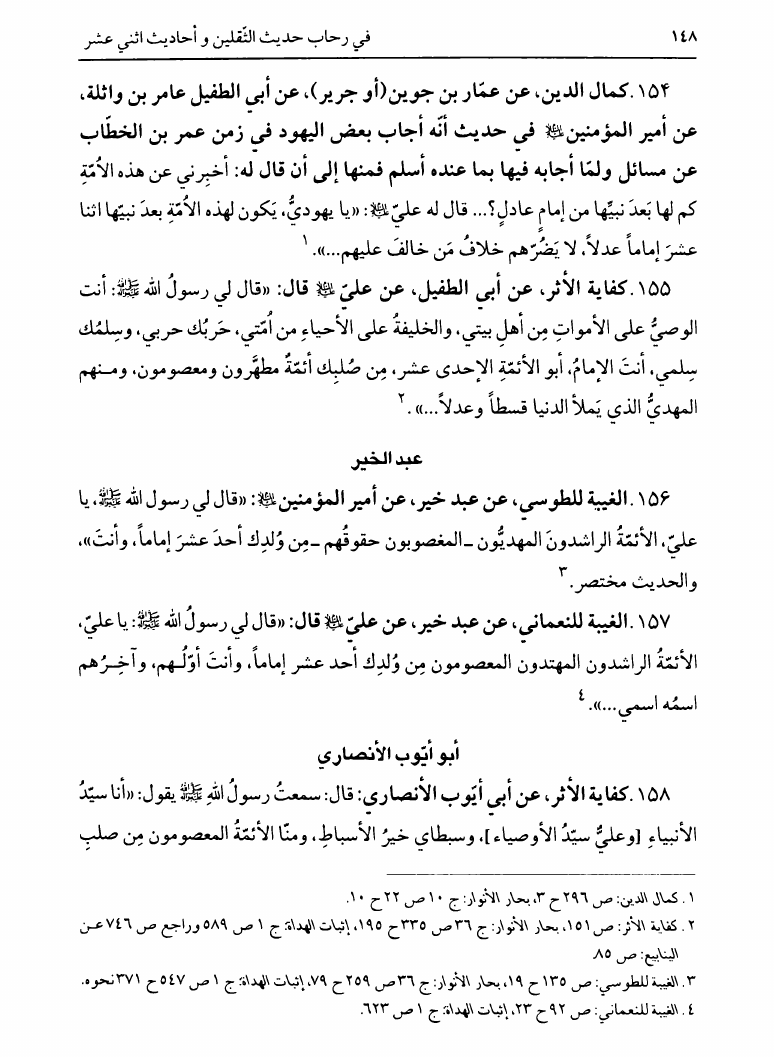 ١٤٨ في رحاب حديث الثّقلين و أحاديث اثني عشر
١٥۴. كمال الدين، عن عمّار بن جوين(أو جرير)، عن أبي الطفيل عامر بن واثلة،
عن أمير المؤمنين في حديث أنّه أجاب بعض اليهود في زمن عمر بن الخطّاب
عن مسائل ولمّا أجابه فيها بما عنده أسلم فمنها إلى أن قال له: أخبِرني عن هذه الاُمّةِ
كم لها بَعدَ نبيِّها من إمامٍ عادلٍ؟... قال له عليّ: «يا يهوديُّ، يَكون لهذه الاُمّةِ بعدَ نبيّها اثنا
عشرَ إماماً عدلاً، لا يَضُرّهم خلافُ مَن خالفَ عليهم...».١
١٥٥. كفاية الأثر، عن أبي الطفيل، عن عليّ قال: «قال لي رسولُ الله ﷺ: أنت
الوصيُّ على الأمواتِ مِن أهلِ بيتي، والخليفةُ على الأحياءِ من اُمّتي، حَربُك حربي، وسِلمُك
سِلمي، أنتَ الإمامُ، أبو الأئمّةِ الإحدى عشر، مِن صُلبِك أئمّةٌ مطهَّرون ومعصومون، ومـنهم
المهديُّ الذي يَملأ الدنيا قسطاً وعدلاً...».٢
عبد الخير
١٥۶. الغيبة للطوسي، عن عبد خير، عن أمير المؤمنين: «قال لي رسول الله ﷺ، يا
عليّ، الأئمّةُ الراشدونَ المهديُّون ـ المغصوبون حقوقُهم ـ مِن وُلدِك أحدَ عشرَ إماماً، وأنتَ»،
والحديث مختصر.٣
١٥٧. الغيبة للنعماني، عن عبد خير، عن عليّ قال: «قال لي رسولُ الله ﷺ: يا عليّ،
الأئمّةُ الراشدون المهتدون المعصومون مِن وُلدِك أحد عشر إماماً، وأنتَ أوّلُـهم، وآخِـرُهم
اسمُه اسمي...».٤
أبو أيّوب الأنصاري
١٥٨. كفاية الأثر، عن أبي أيّوب الأنصاري: قال: سمعتُ رسولَ اللهِ ﷺ يقول: «أنا سيّدُ
الأنبياءِ [وعليٌّ سيّدُ الأوصياء]، وسبطاي خيرُ الأسباطِ، ومنّا الأئمّةُ المعصومون مِن صلبِ
١. كمال الدين: ص ٢٩٦ ح ٣، بحار الأنوار: ج ١٠ ص ٢٢ ح ١٠.
٢. كفاية الأثر: ص ١٥١، بحار الأنوار: ج ٣٦ ص ٣٣٥ ح ١٩٥، إثبات الهداة: ج ١ ص ٥٨٩ وراجع ص ٧٤٦ عـن
الينابيع: ص ٨٥.
٣. الغيبة للطوسي: ص ١٣٥ ح ١٩، بحار الأنوار: ج ٣٦ ص ٢٥٩ ح ٧٩، إثبات الهداة: ج ١ ص ٥٤٧ ح ٣٧١ نحوه.
٤. الغيبة للنعماني: ص ٩٢ ح ٢٣، إثبات الهداة: ج ١ ص ٦٢٣.